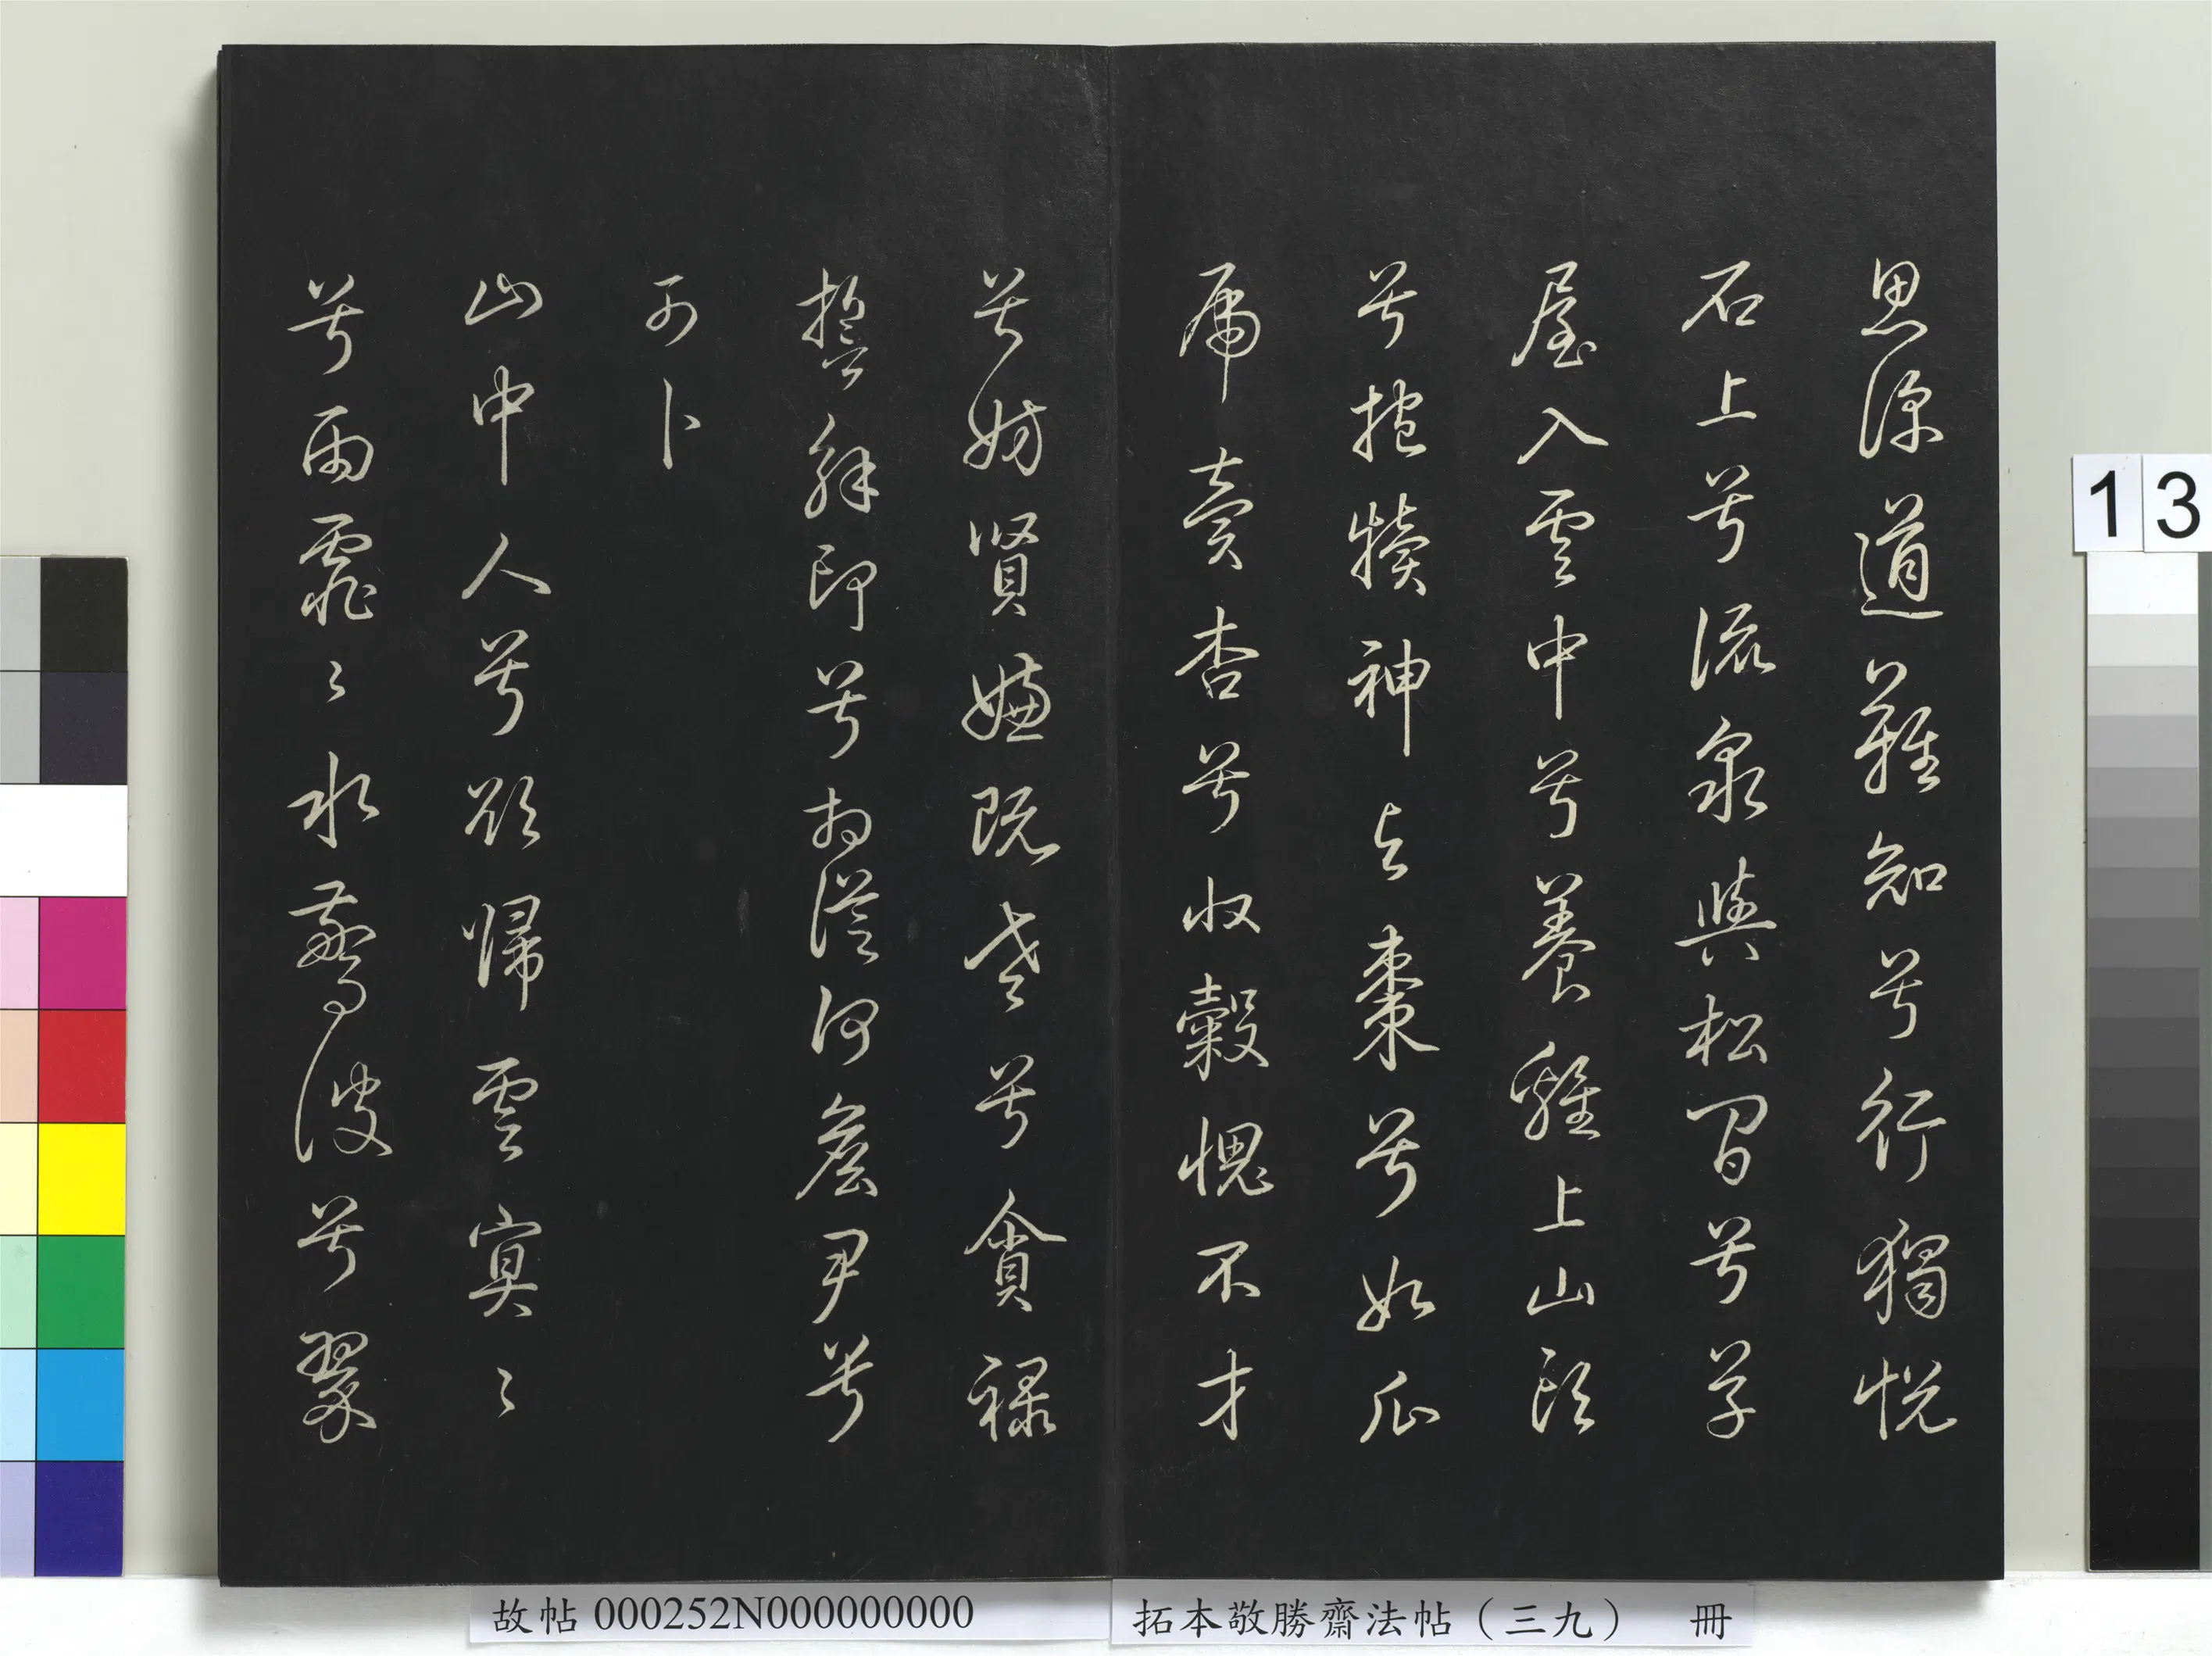 思深道難知兮行獨悅
石上兮流泉與松間兮草
屋入雲中兮養雞上山頭
兮抱犢神與棗兮如瓜
虎賣杏兮收穀愧不才
兮妨賢嫌既老兮貪祿
誓解印兮相從何詹尹兮
可卜
山中人兮欲歸雲冥〻
兮雨霏〻水驚波兮翠
13
故帖 000252N000000000
拓本敬勝齋法帖（三九） 冊